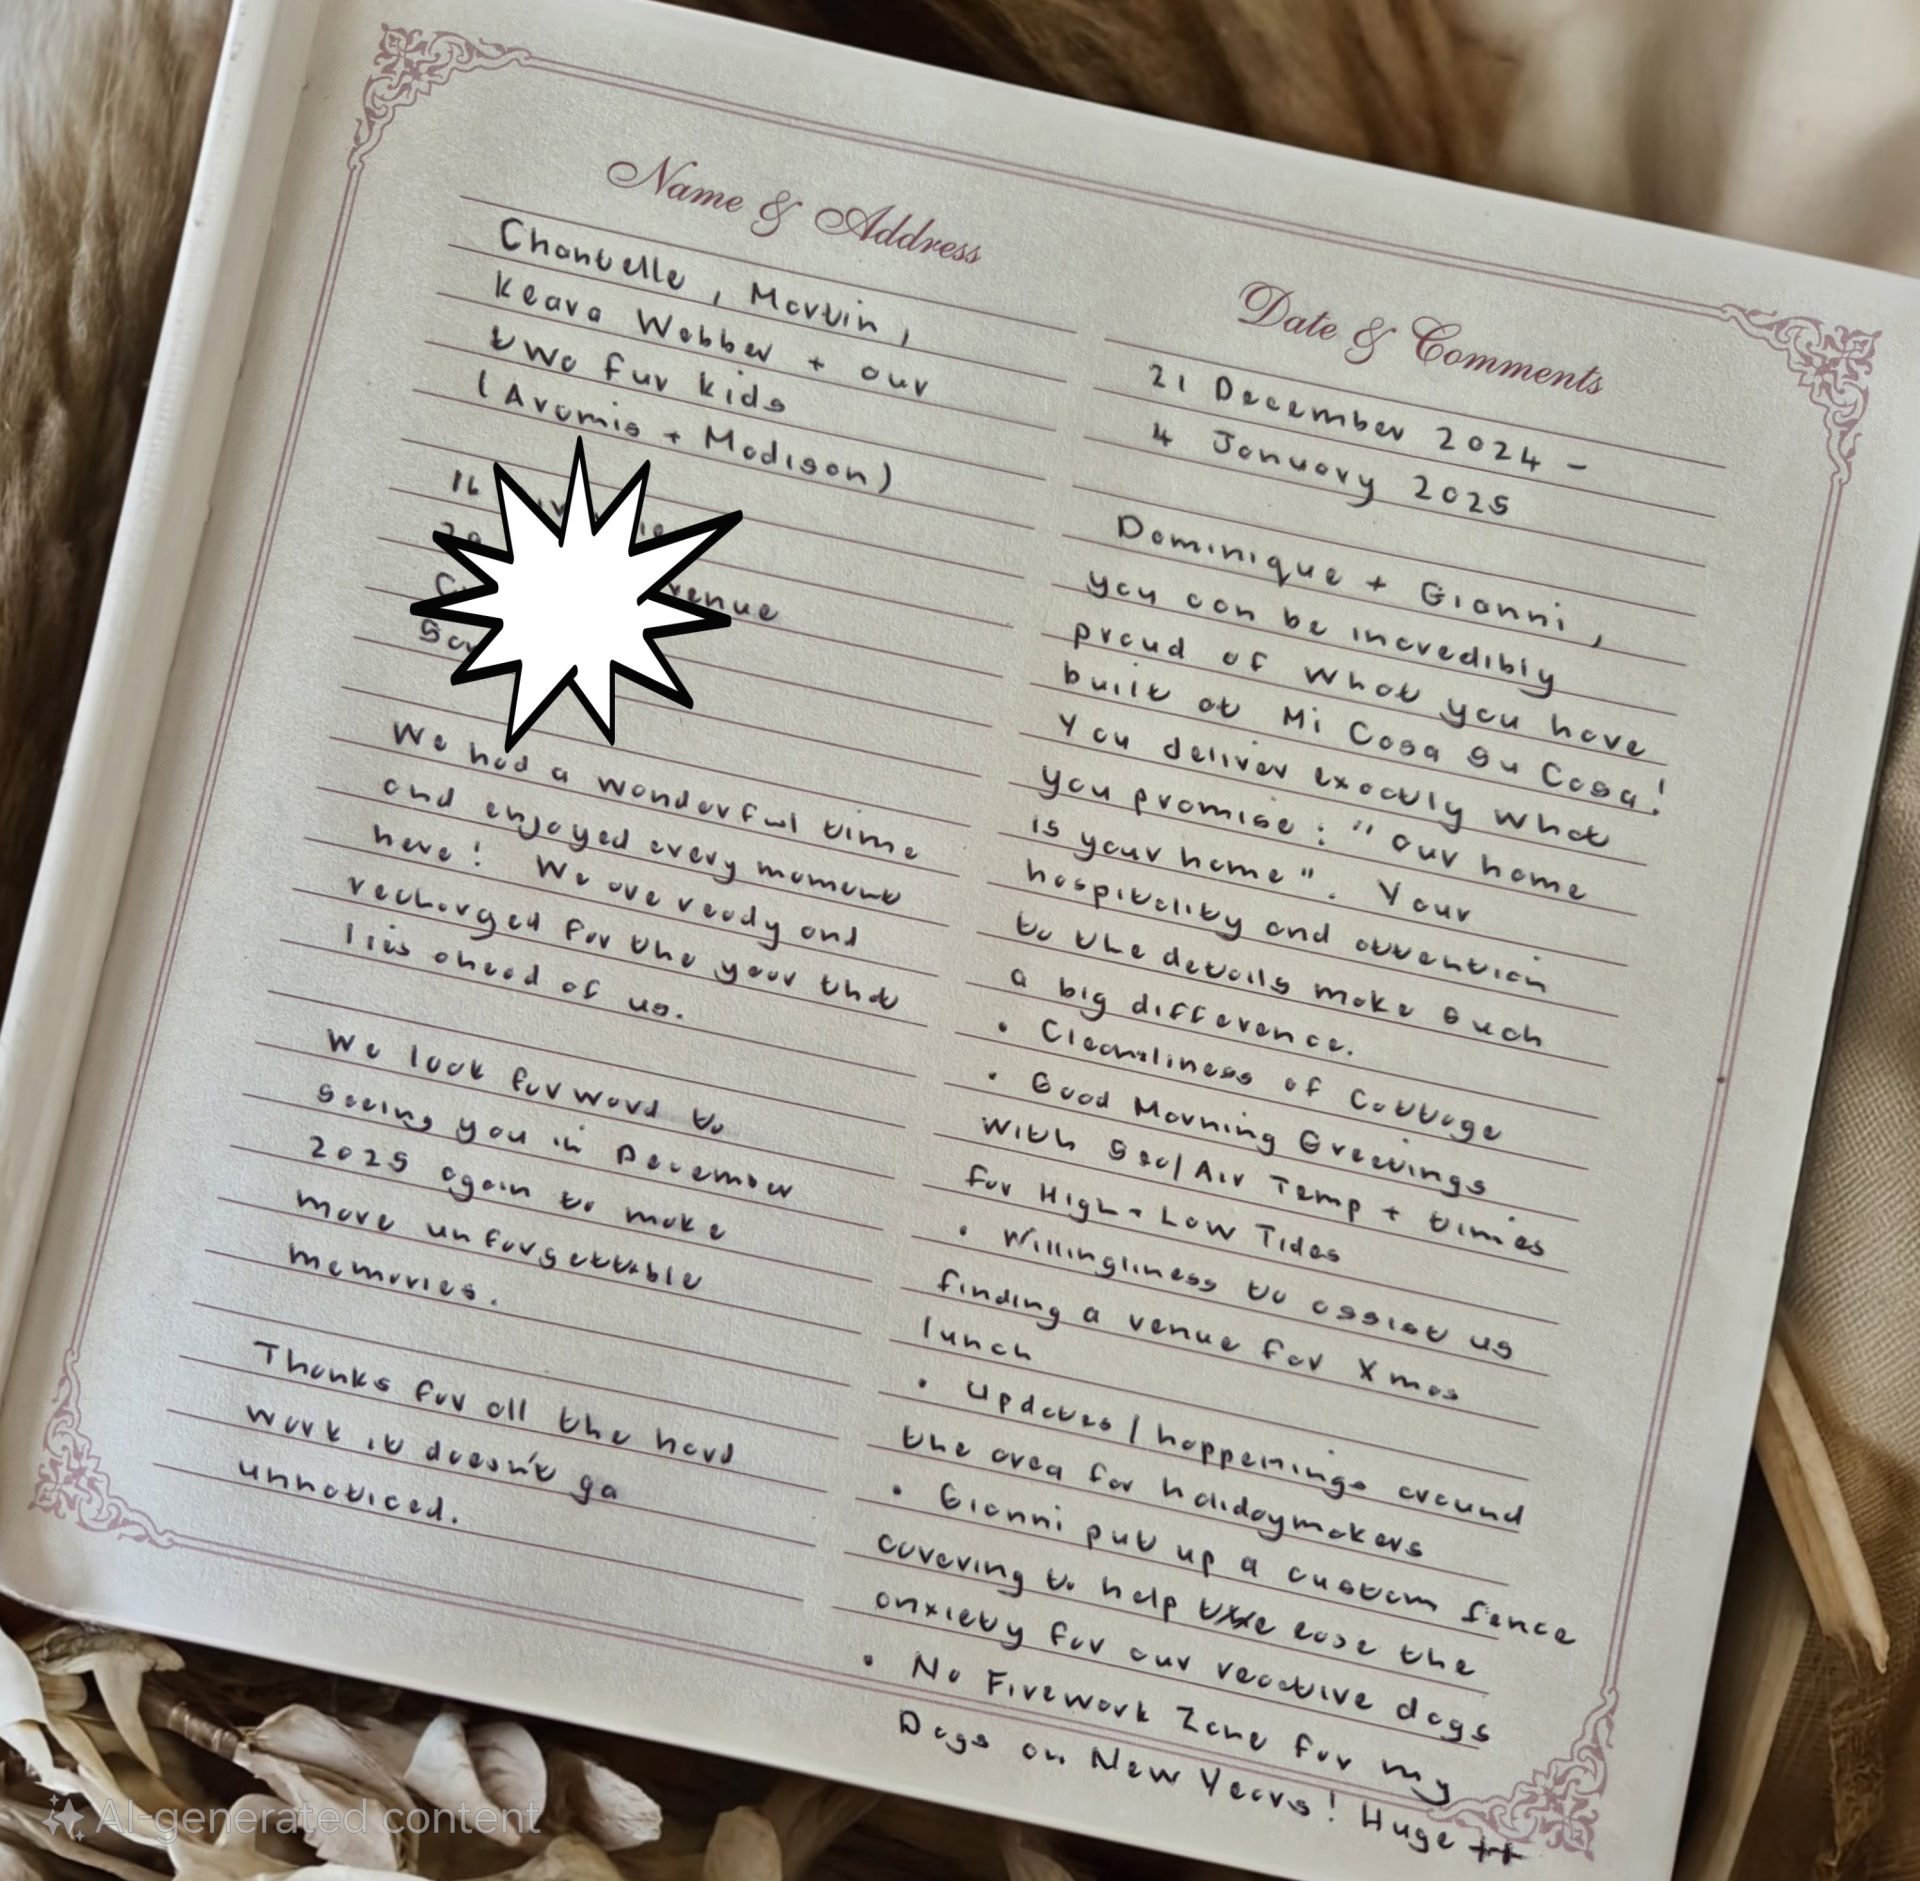 Name & Address
Chantelle, Martin,
Keara Webber + our
two fur kids
(Aramis + Madison)
16
venue
We had a wonderful time
and enjoyed every moment
here! We are ready and
recharged for the year that
lies ahead of us.
We look forward to
seeing you in December
2025 again to make
more unforgettable
memories.
Thanks for all the hard
work it doesn't go
unnoticed.
Date & Comments
21 December 2024 -
4 January 2025
Dominique + Gianni,
you can be incredibly
proud of what you have
built at Mi Casa Su Casa!
You deliver exactly what
you promise: "Our home
is your home". Your
hospitality and attention
to the details make such
a big difference.
• Cleanliness of Cottage
• Good Morning Greetings
with Sea/Air Temp + times
for High + Low Tides
• Willingliness to assist us
finding a venue for Xmas
lunch
• Updates/happenings around
the area for holidaymakers
• Gianni put up a custom fence
covering to help ease the
anxiety for our reactive dogs
• No Firework Zone for my
Dogs on New Years! Huge ++
AI-generated content